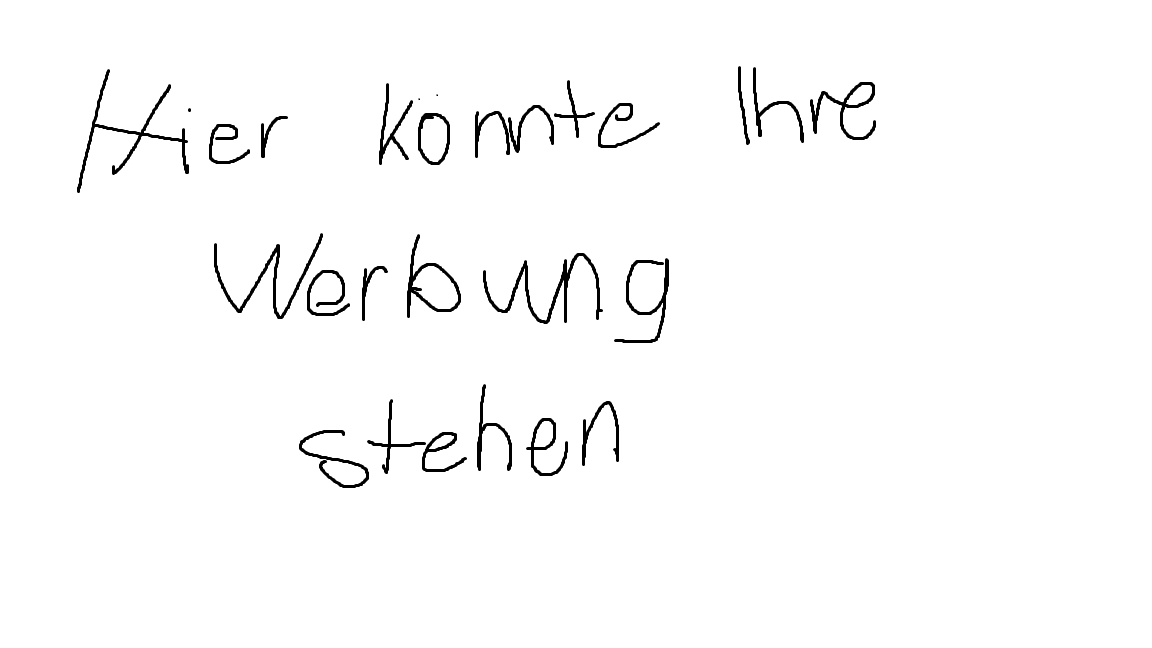 Hier könnte Ihre
Werbung
stehen